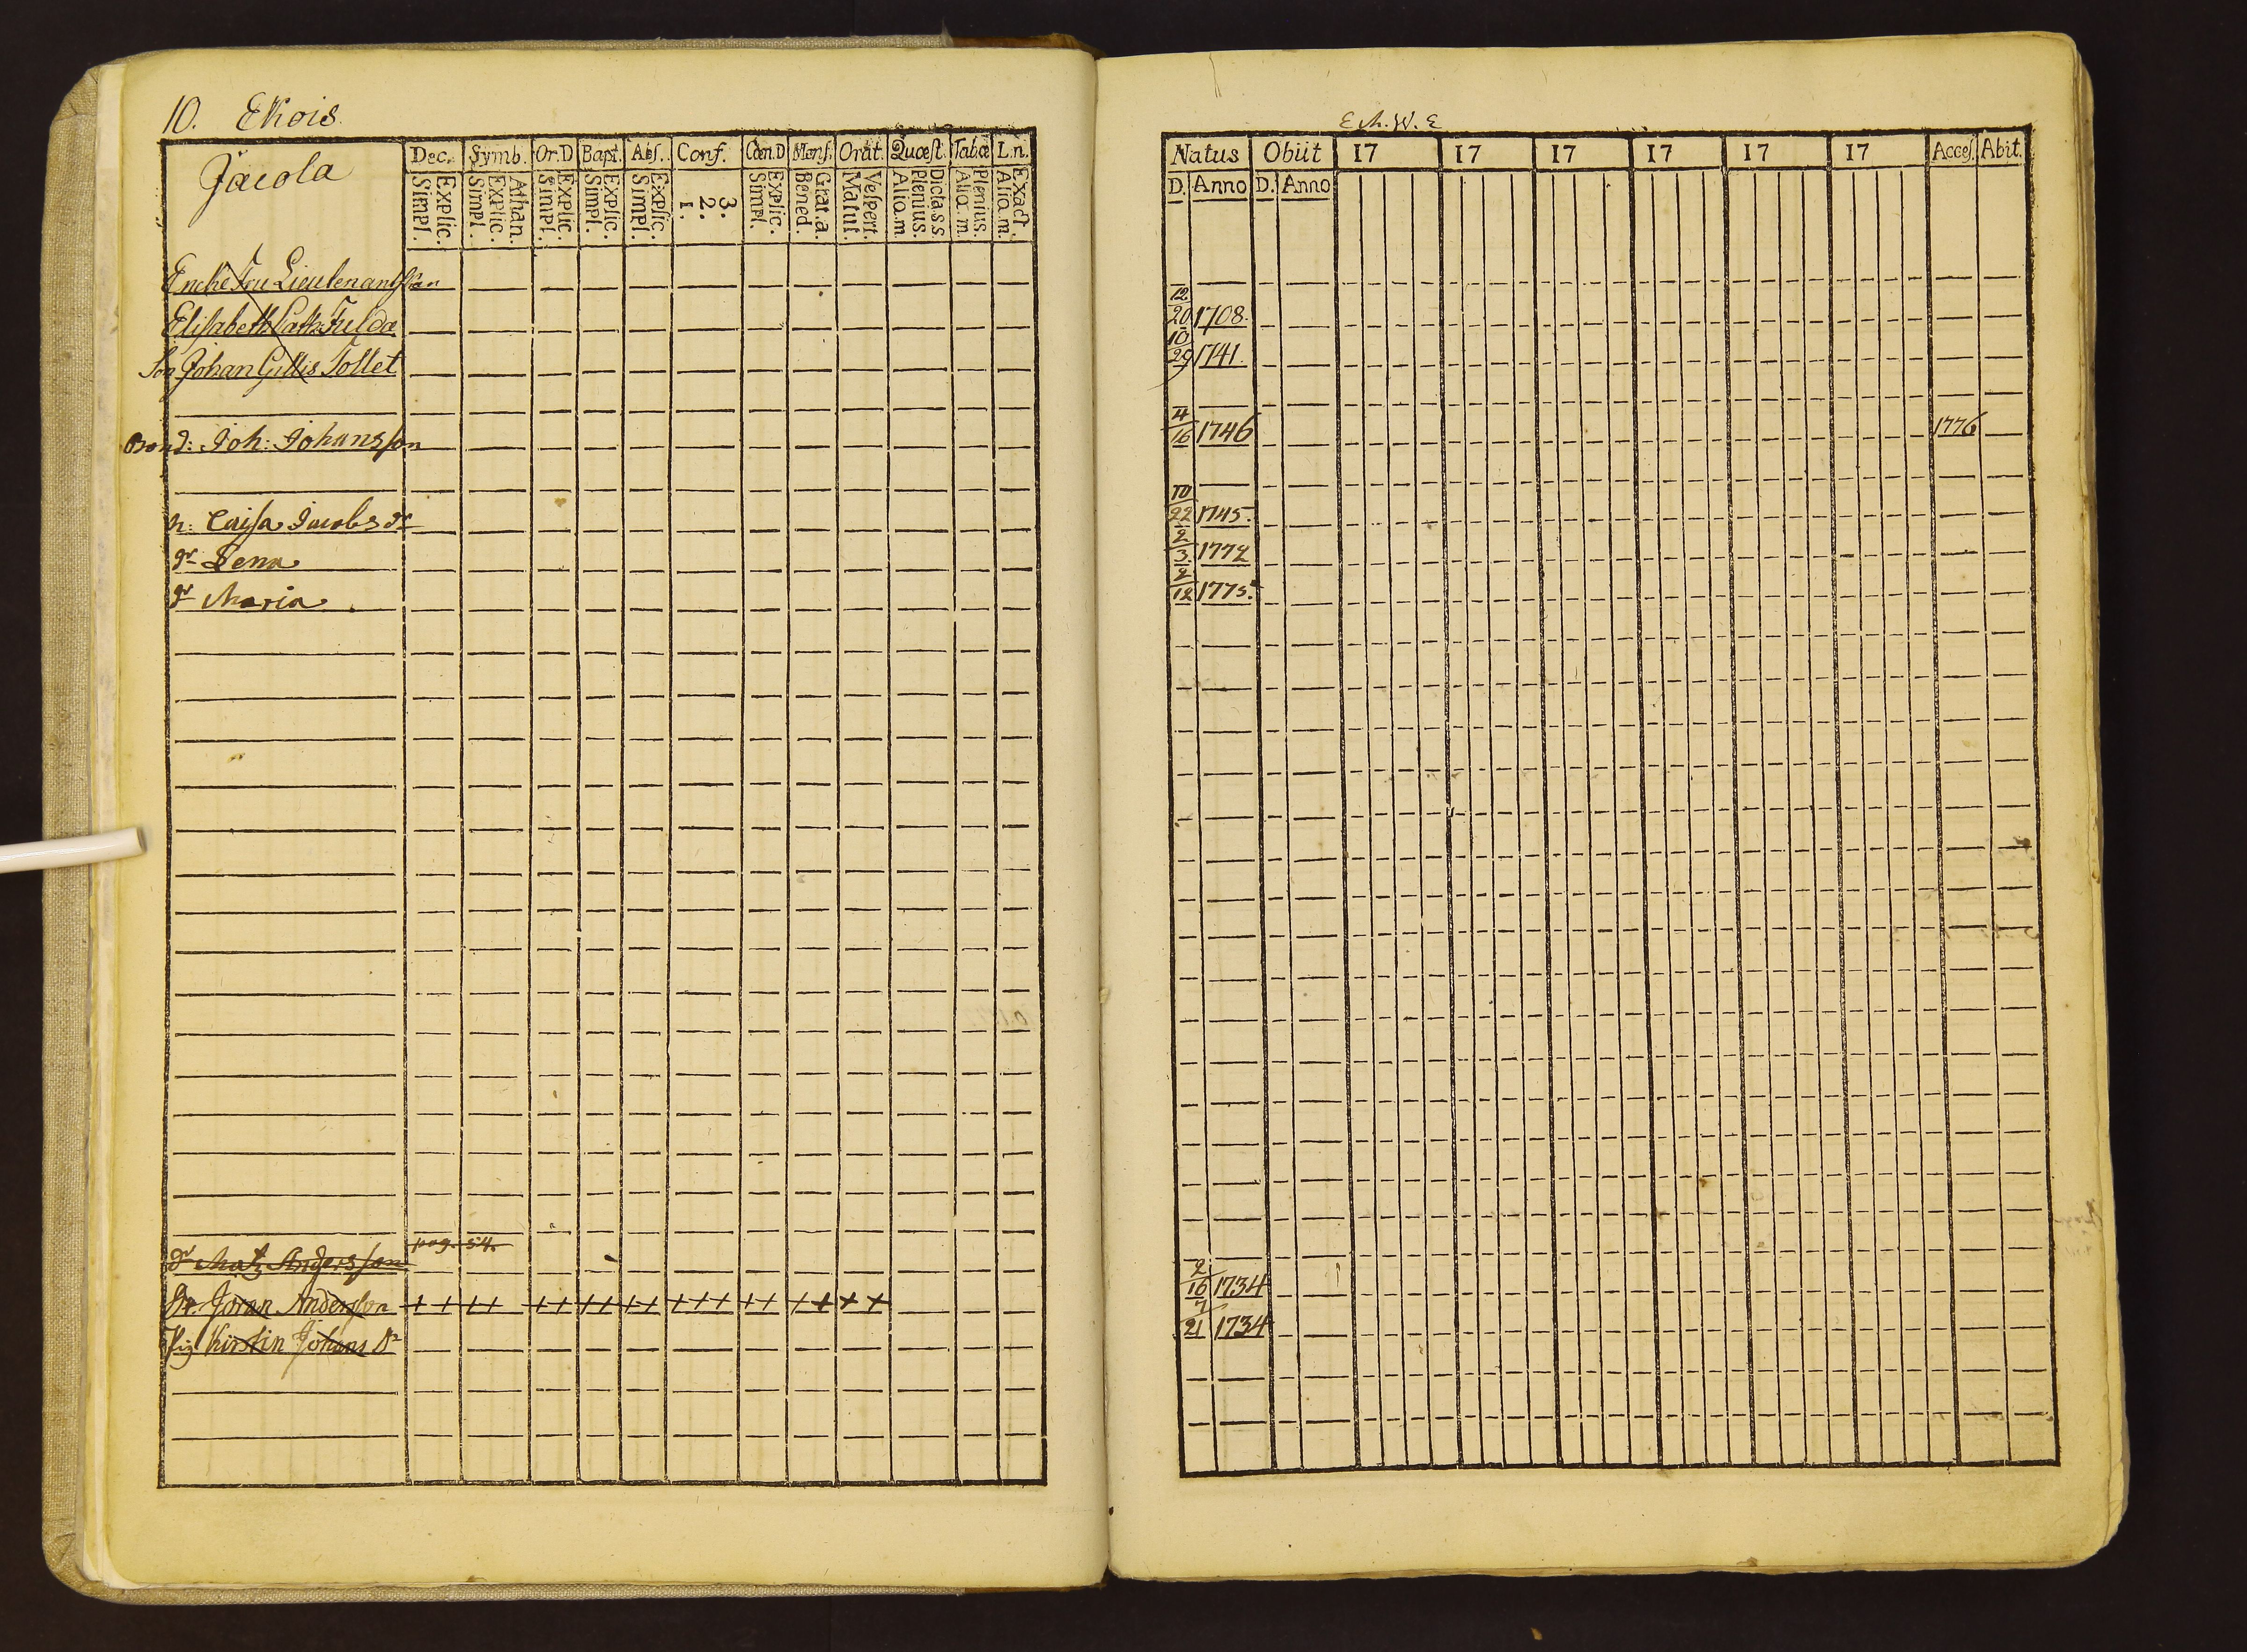 10. Ekois
Jacola
Dec. Symb. Or.D Bapt. Abs. Conf. Cœn.D Mens. Orat. Quœst. Tab.œ L.n.
Explic. Simpl. Athan. Explic. Simpl. Explic. Simpl. Explic. Simpl. Explic. Simpl. 3. 2. 1. Explic. Simpl. Grat.a. Bened. Vespert. Matut. Dicta.s.s. Plenius. Aliq.m. Plenius. Aliq.m. Exact. Aliq.m.
Encke Fru Lieutenantskan
Elisabeth Cath. Fulda
Son Johan Gillis Tollet
Bond: Joh: Johansson
h: Caisa Jacobs dr
dr Lena
dr Maria
pag. 54.
dr Matz Andersson
Dr. Jöran Anderson + + + + + + + + + + + + + + + + + + +
Pig Kirstin Johans Dr
E.M.W.E
Natus Obiit 17 17 17 17 17 17 Acces. Abit.
D. Anno D. Anno
12/20 1708.
10/29 1741.
4/16 1746 1776
10/22 1745.
2/3 1772
2/12 1775.
2/16 1734
7/21 1734